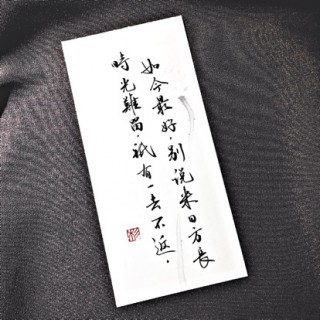 如今最好，别说来日方長
時光難留，祇有一去不返。